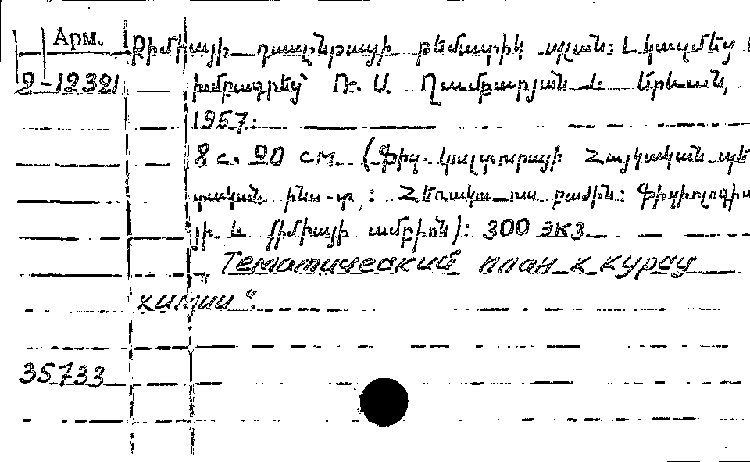 Арм. Քիմիայի դասընթացի թեմատիկ պլան: Կազմեց և
9-12321 խմբագրեց Ռ. Ս. Ղամբարյան.: Երևան,
1957.:
8 с. 20 см (Ֆիզ. կուլտուրայի Հայկական պե
տական ինս-տ,: Հեռակա բաժին: Ֆիզիոլոգիա
յի և քիմիայի ամբիոն): 300 экз
„Тематический план к курсу
химии“.
35733